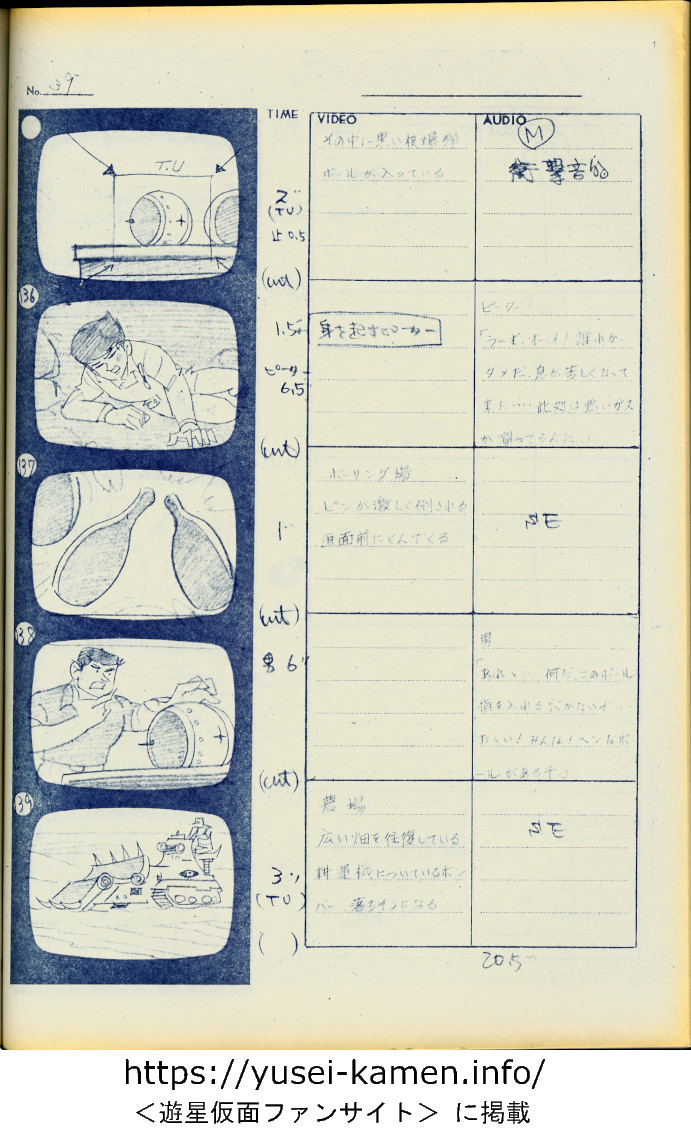 No. 39
TIME
VIDEO
AUDIO
T.U
2"
(TU)
止0.5
その中に黒い核爆弾
ボールが入っている
M
衝撃音
(cut)
136
1.5"
ピーター
6.5"
身を起すピーター
ピーター
「うーむ、オーイ!誰か
ダメだ、息が苦しくなって
きた……此処は悪いガス
(cut)
137
1"
ボーリング場
ピンが激しく倒される
画面前にとんでくる
(cut)
138
男 6"
男
「あれゝ…何だこのボール
指を入れる穴がないぞ…
おゝい!みんな!ヘンなボ
ールがあるぞ」
(cut)
139
3"
(TU)
農場
広い畑を往復している
耕運機についているボン
バー 落ちそうになる
( )
20.5
https://yusei-kamen.info/
＜遊星仮面ファンサイト＞ に掲載